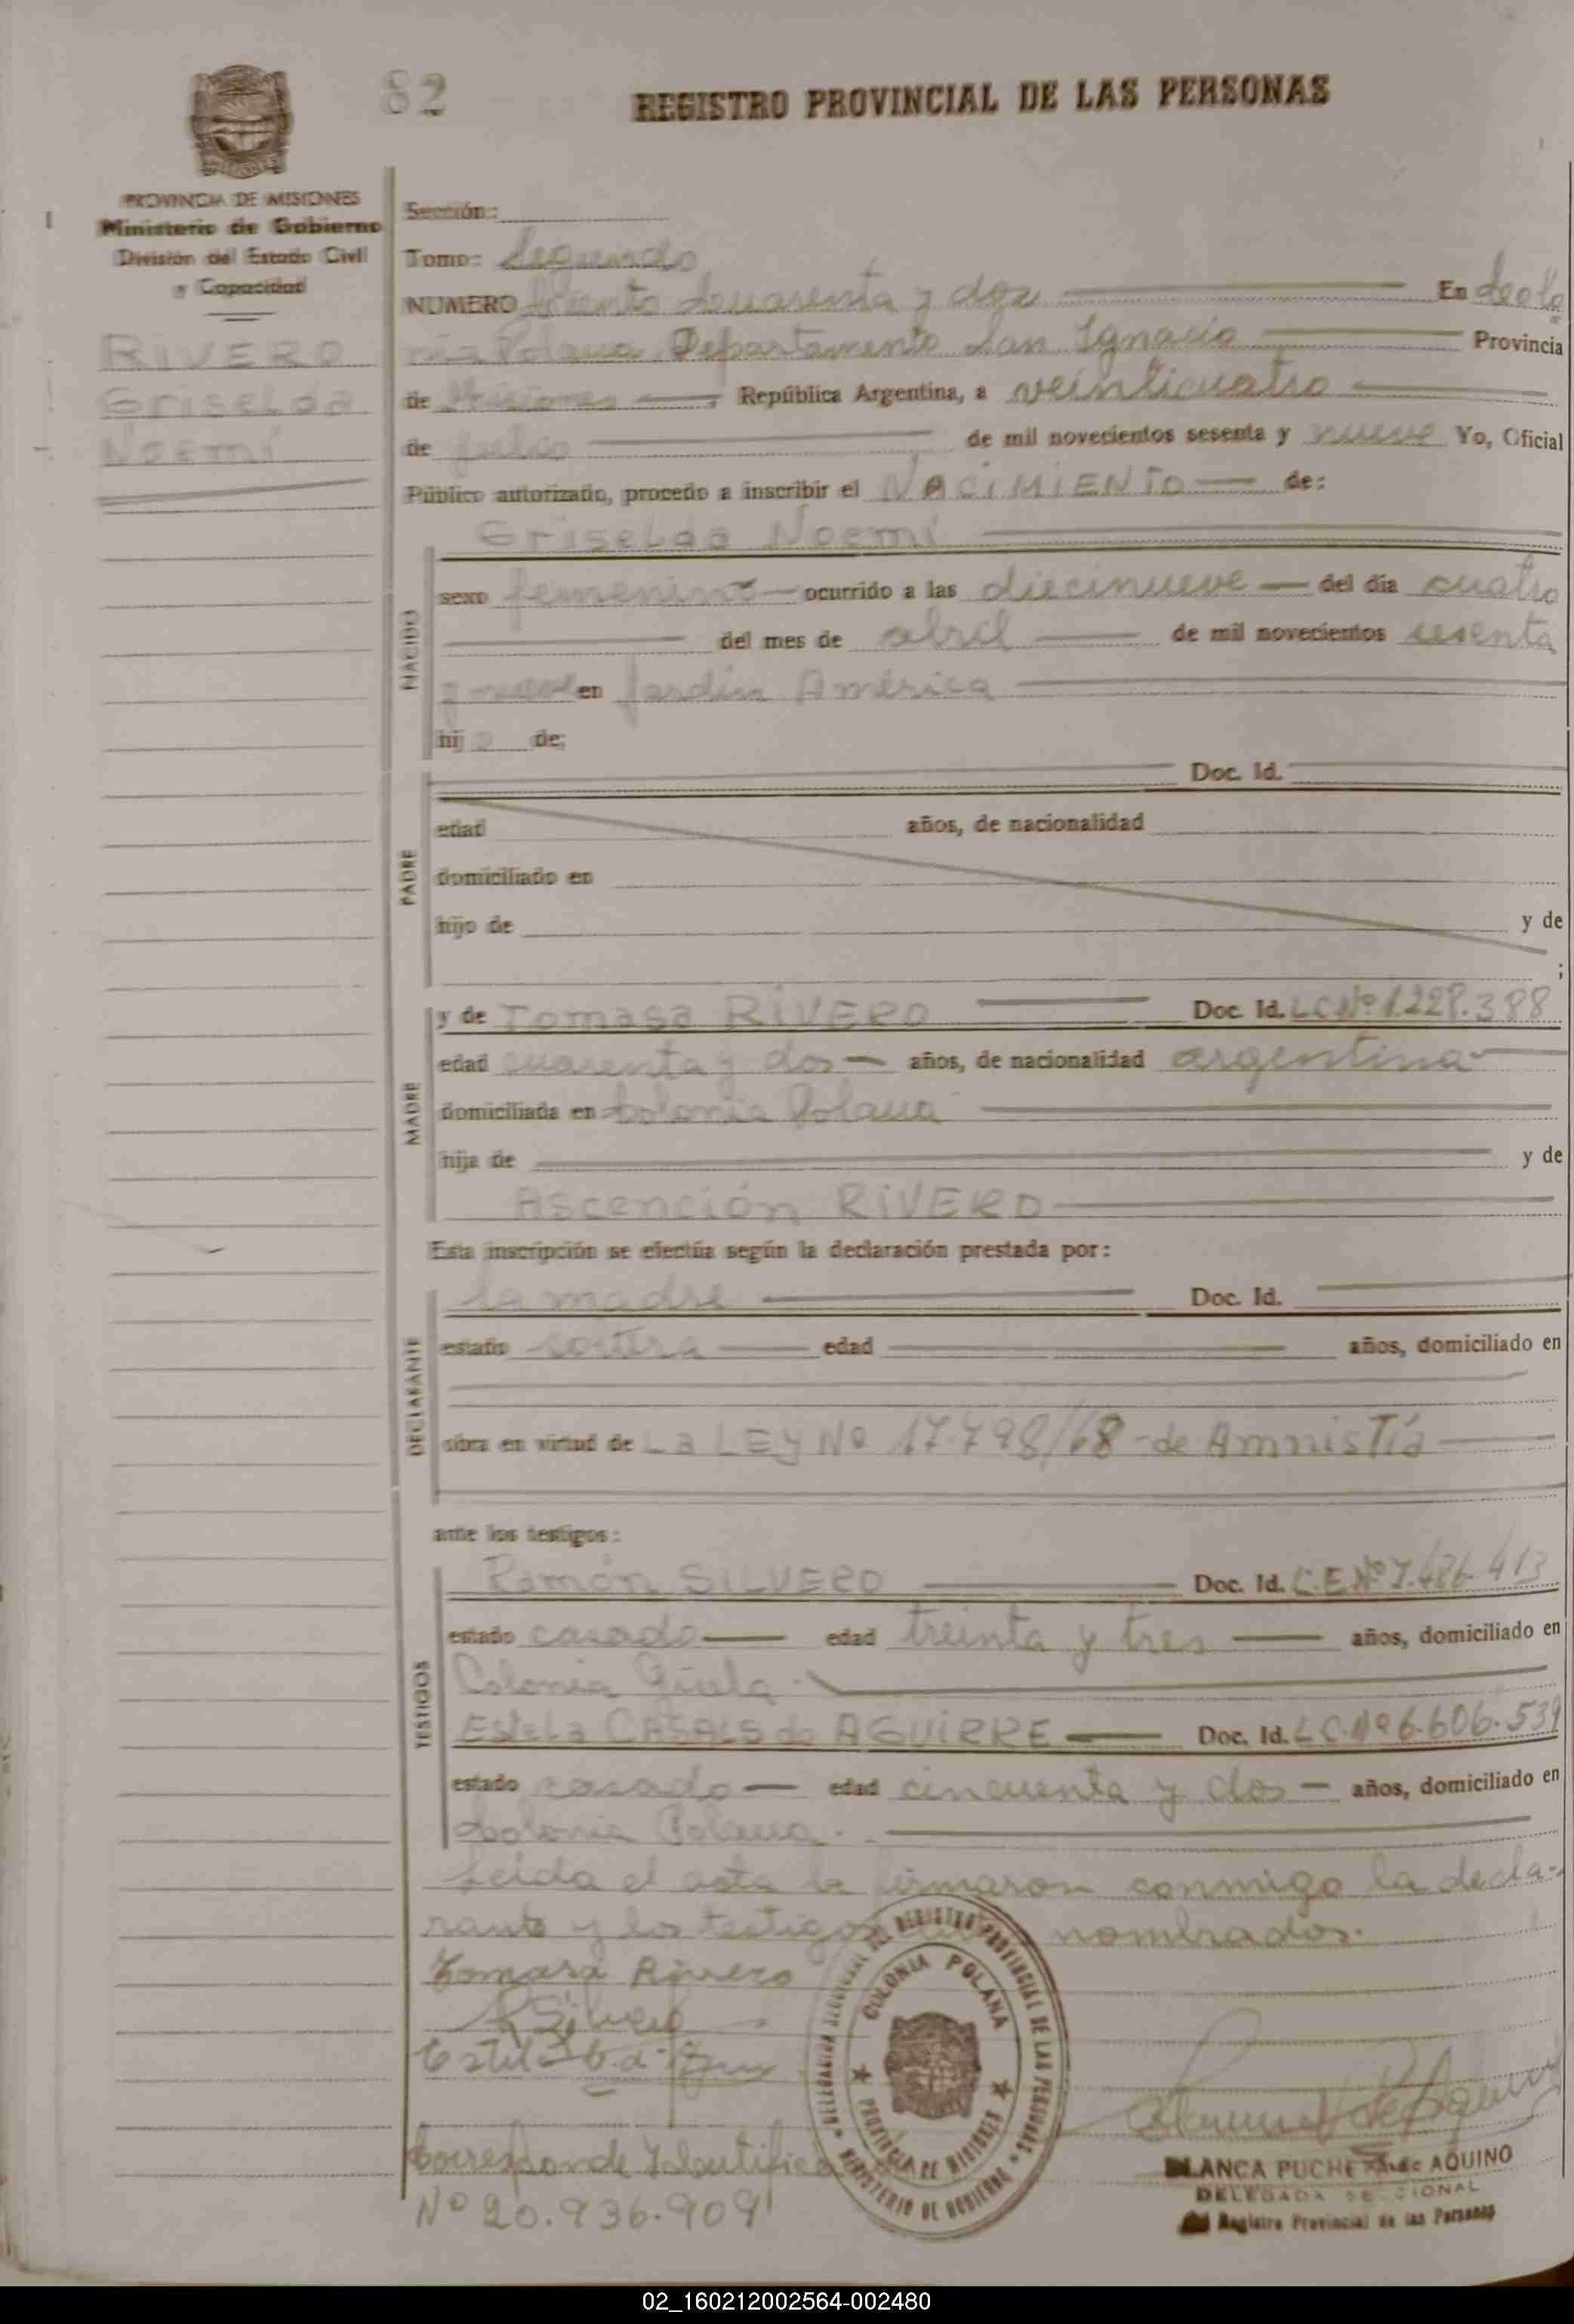 82
REGISTRO PROVINCIAL DE LAS PERSONAS
PROVINCIA DE MISIONES
Ministerio de Gobierno
División del Estado Civil
y Capacidad
RIVERO
Griselda
Noemí
Sección:
Tomo: Segundo
NUMERO Ciento Cuarenta y dos En Colo
nia Polana Departamento San Ignacio Provincia
de Misiones República Argentina, a veinticuatro
de julio de mil novecientos sesenta y nueve Yo, Oficial
Público autorizado, procedo a inscribir el NACIMIENTO de:
Griselda Noemí
NACIDO
sexo femenino ocurrido a las diecinueve del día cuatro
del mes de abril de mil novecientos sesenta
y nueve en Jardín América
hija de:
PADRE
Doc. Id.
edad años, de nacionalidad
domiciliado en
hijo de y de
;
MADRE
y de Tomasa RIVERO Doc. Id. LC Nº 1.228.388
edad cuarenta y dos años, de nacionalidad argentina
domiciliada en Colonia Polana
hija de y de
Ascención RIVERO
Esta inscripción se efectúa según la declaración prestada por:
DECLARANTE
la madre Doc. Id.
estado soltera edad años, domiciliado en
obra en virtud de La LEY Nº 17.798/68 - de Amnistía
ante los testigos:
TESTIGOS
Ramón SILVERO Doc. Id. L.E. Nº 7.486.413
estado casado edad treinta y tres años, domiciliado en
Colonia
Estela CASALS de AGUIRRE Doc. Id. L.C. Nº 6.606.539
estado casado edad cincuenta y dos años, domiciliado en
Colonia Polana.
Leida el acta la firmaron conmigo la decla-
rante y los testigos nombrados.
Tomasa Rivero
DELEGACION SECCIONAL DEL REGISTRO PROVINCIAL DE LAS PERSONAS
MINISTERIO DE GOBIERNO
COLONIA POLANA
PROVINCIA DE MISIONES
Corresponde Identifica
Nº 20.936.909
BLANCA PUCHETA de AQUINO
DELEGADA SECCIONAL
del Registro Provincial de las Personas
02_160212002564-002480